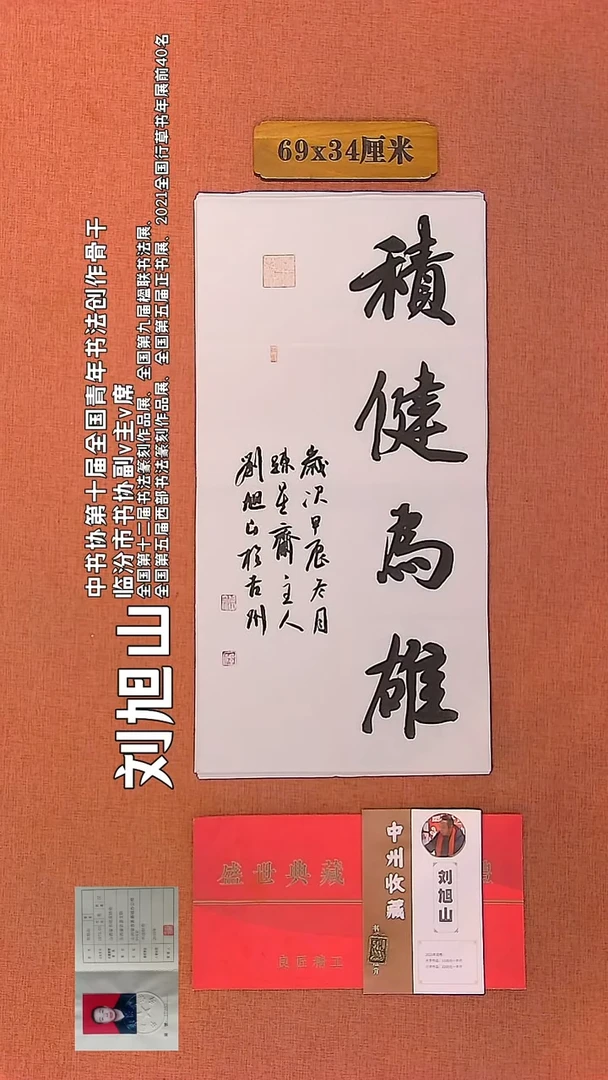 69x34厘米
積健為雄
歲次甲辰冬月
臻星齋主人
劉旭山於古州
刘旭山
中书协第十届全国青年书法创作骨干
临汾市书协副v主v席
全国第十二届书法篆刻作品展、全国第九届楹联书法展、
全国第五届西部书法篆刻作品展、全国第五届正书展、2021全国行草书年展前40名
盛世典藏
良匠精工
中州收藏
刘旭山